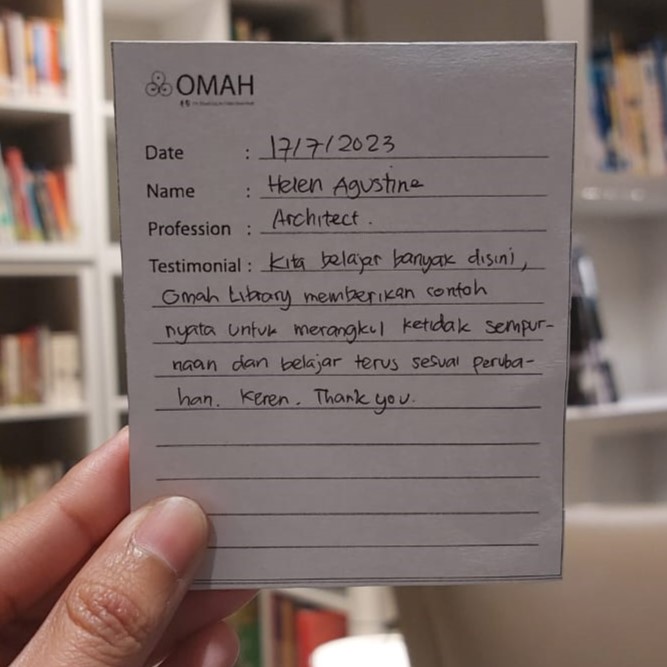 OMAH
Date : 17/7/2023
Name : Helen Agustine
Profession : Architect.
Testimonial : Kita belajar banyak disini,
Omah Library memberikan contoh
nyata untuk merangkul ketidak sempur-
naan dan belajar terus sesuai peruba-
han. Keren. Thank you.